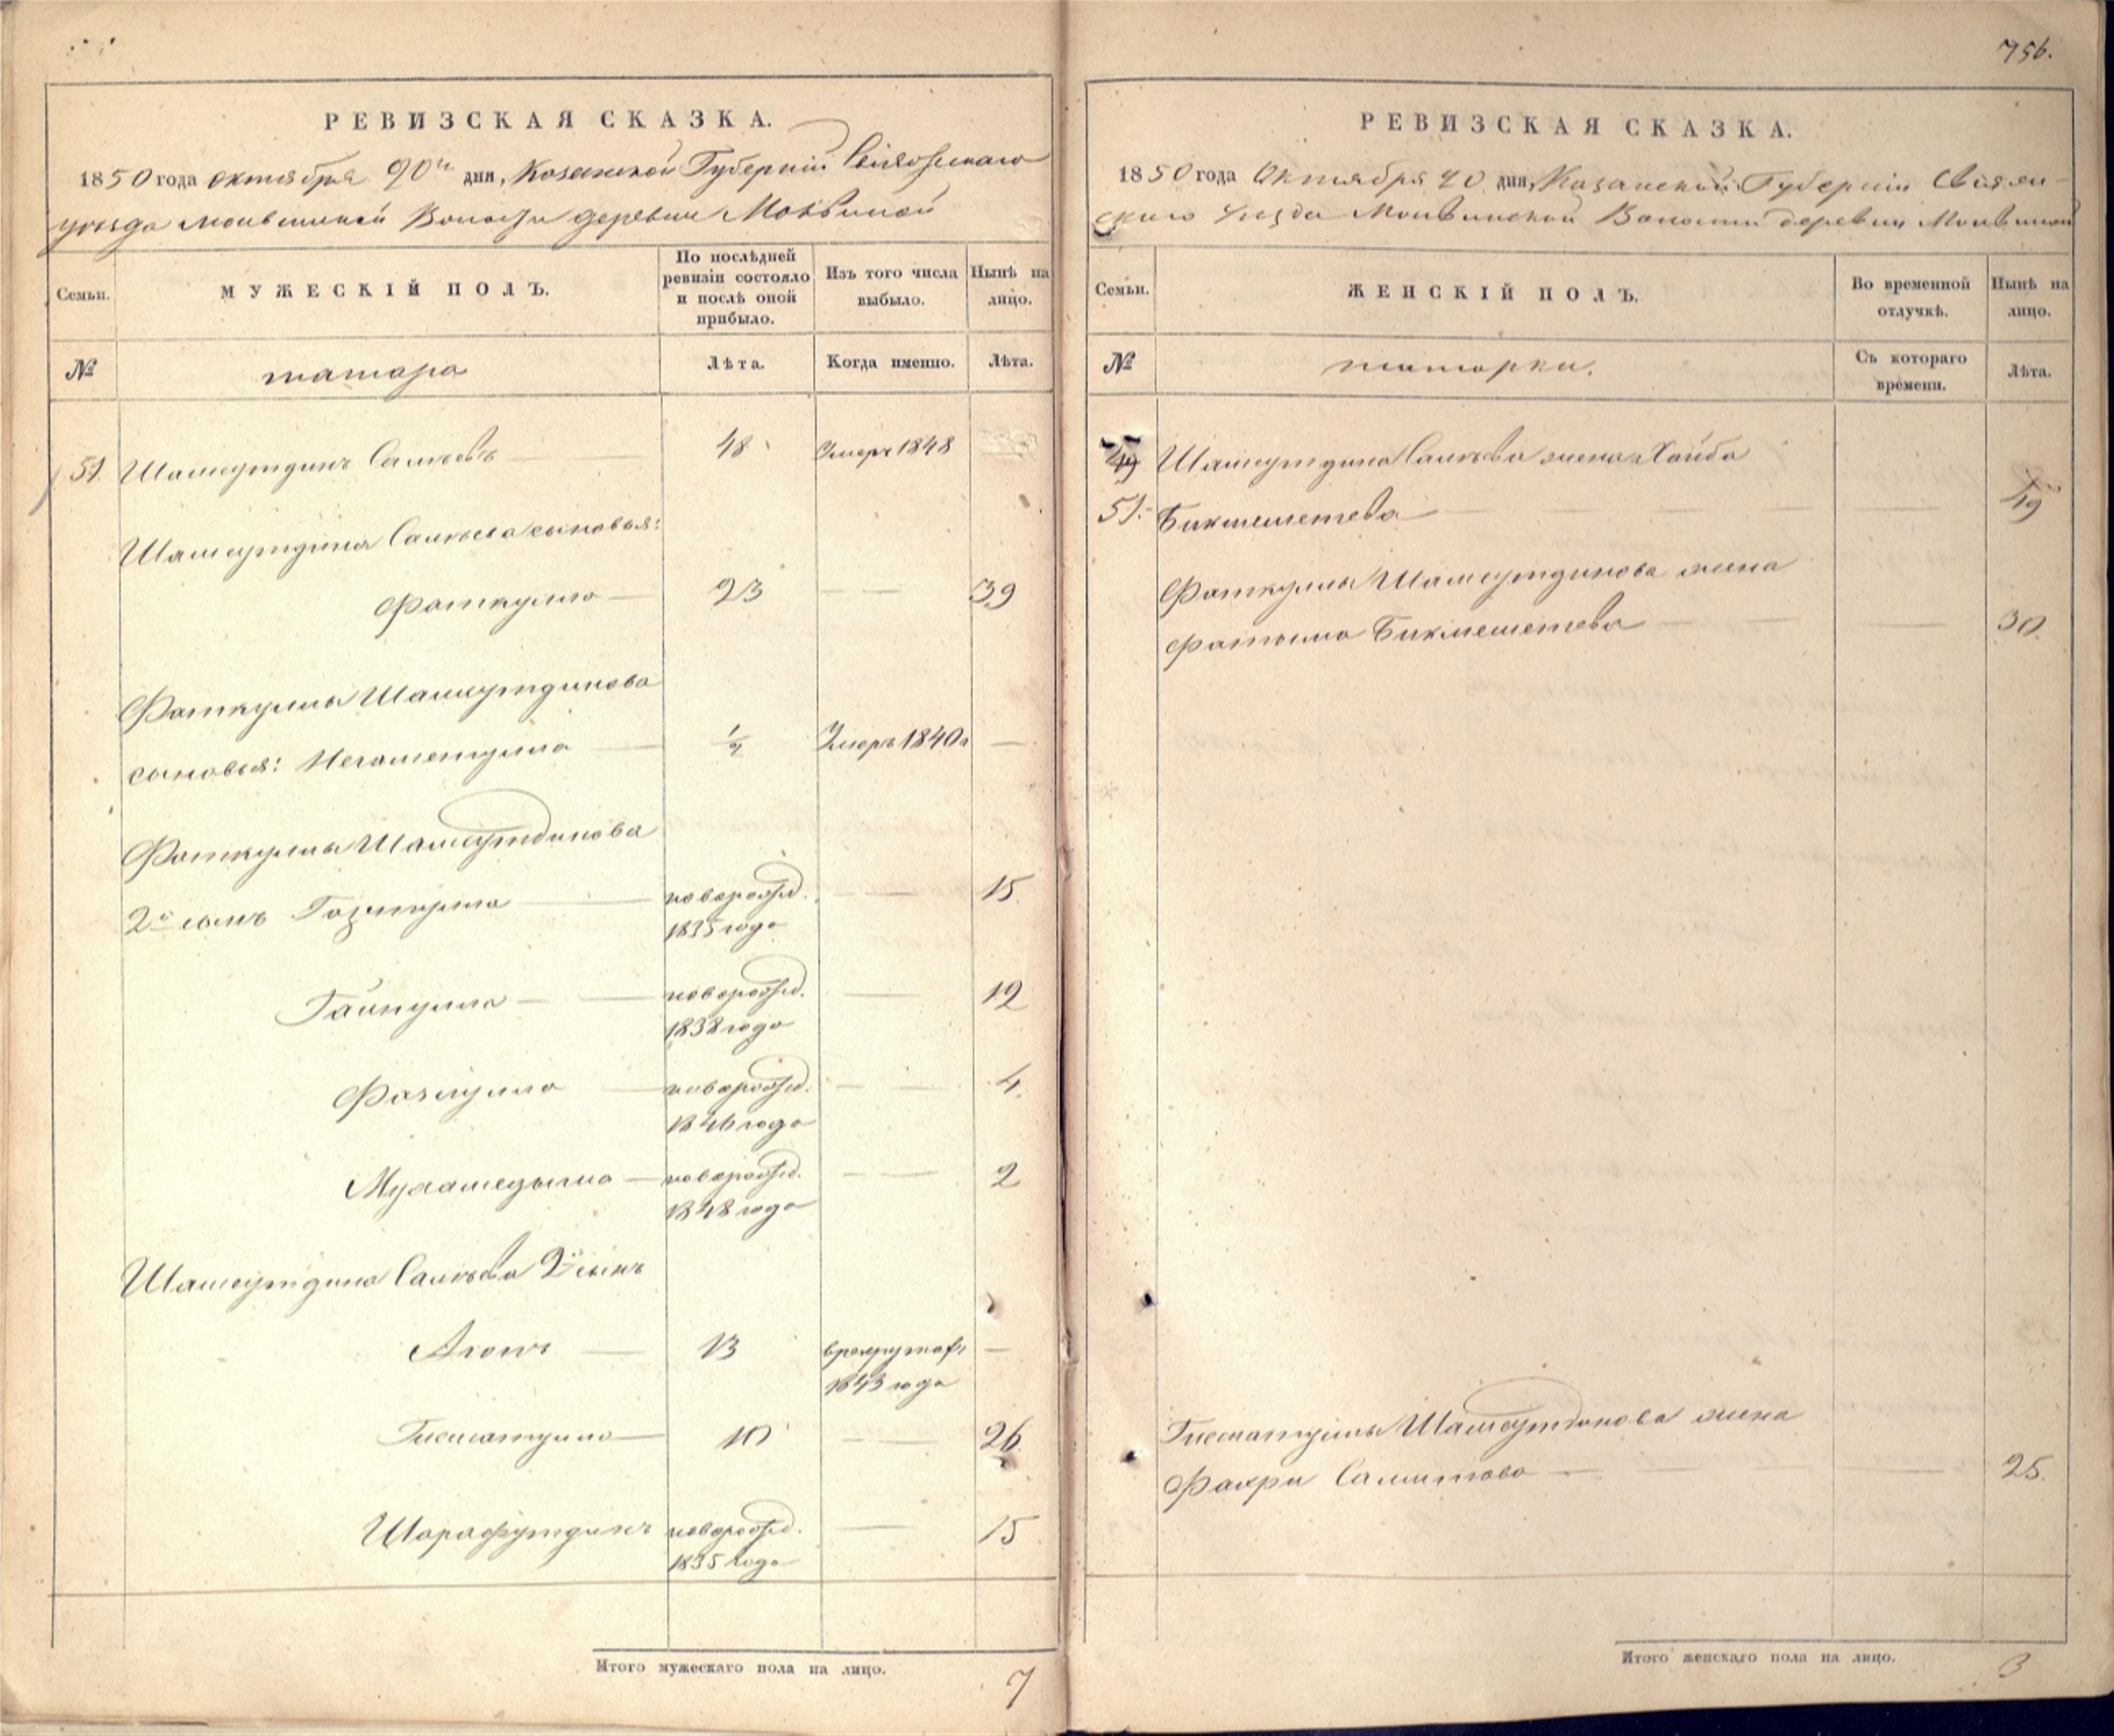 756.
РЕВИЗСКАЯ СКАЗКА.
1850 года октября 20го дня, Казанской Губерніи Свіяжскаго
уѣзда Молвинской Волости деревни Молвиной
Семьи. МУЖЕСКІЙ ПОЛЪ. По послѣдней ревизіи состояло и послѣ оной прибыло. Изъ того числа выбыло. Нынѣ на лицо.
№ татара Лѣта. Когда именно. Лѣта.
51. Шамсутдинъ 48 Умеръ 1848
Шамсутдина сыновья:
Фаткулла 23 39
Фаткуллы Шамсутдинова
сыновья: Негаметулла 1/2 Умеръ 1840 г —
Фаткуллы Шамсутдинова
2й сынъ новорожд. 15
1835 года
Гайнулла новорожд. 12
1838 года
Фазлулла новорожд. 4.
1846 года
новорожд. 2
1848 года
Шамсутдина 2й сынъ
13 —
1843 года
10 26
Шарафутдинъ новорожд. 15
1835 года
Итого мужескаго пола на лицо. 7
РЕВИЗСКАЯ СКАЗКА.
1850 года Октября 20 дня, Казанской Губерніи Свіяж-
скаго уѣзда Молвинской Волости деревни Молвиной
Семьи. ЖЕНСКІЙ ПОЛЪ. Во временной отлучкѣ. Нынѣ на лицо.
№ татарки. Съ котораго времени. Лѣта.
49 Шамсутдина жена
51. Бикмешетева 49
Фаткуллы Шамсутдинова жена
Фатыма Бикмешетева 30.
Шамсутдинова жена
Фахри Салитова 25.
Итого женскаго пола на лицо. 3